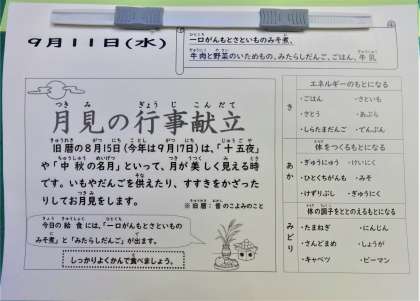 9月11日(水)
一口がんもとさといものみそ煮、
牛肉と野菜のいため、みたらしだんご、ごはん、牛乳
月見の行事献立
旧暦の8月15日(今年は9月17日)は、「十五夜」
や「中秋の名月」といって、月が美しく見える時
です。いもやだんごを供えたり、すすきをかざった
りしてお月見をします。
※旧暦:昔のこよみのこと
今日の給食には、「一口がんもとさといもの
みそ煮」と「みたらしだんご」が出ます。
しっかりよくかんで食べましょう。
エネルギーのもとになる
き
・ごはん ・さといも
・さとう ・あぶら
・しらたまだんご ・でんぷん
体をつくるもとになる
あか
・ぎゅうにゅう ・けいにく
・ひとくちがんも ・みそ
・けずりぶし ・ぎゅうにく
体の調子をととのえるもとになる
みどり
・たまねぎ ・にんじん
・さんどまめ ・しょうが
・キャベツ ・ピーマン